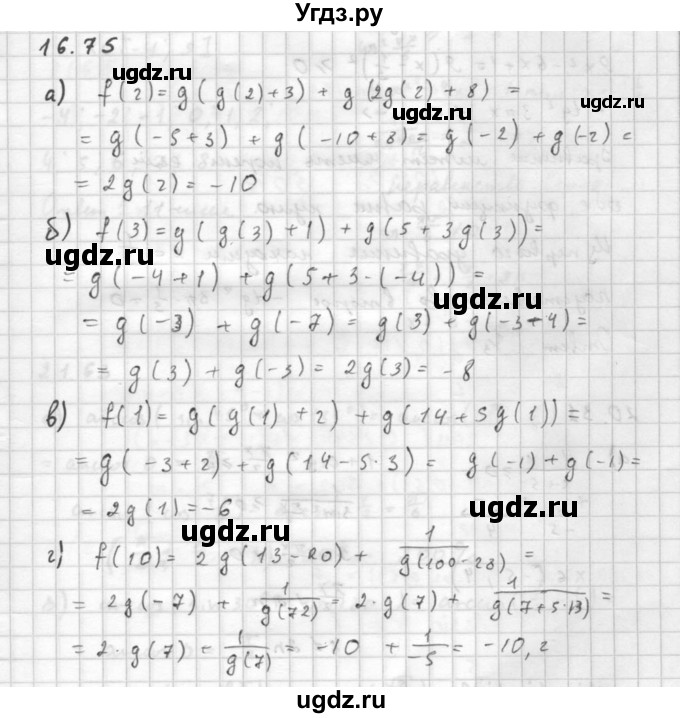 Угдз.ру
16.75
а) f(2) = g(g(2)+3) + g(2g(2)+8) =
= g(-5+3) + g(-10+8) = g(-2) + g(-2) =
= 2g(2) = -10
б) f(3) = g(g(3)+1) + g(5+3g(3)) =
= g(-4+1) + g(5+3·(-4)) =
= g(-3) + g(-7) = g(3) + g(-3-4) =
= g(3) + g(-3) = 2g(3) = -8
в) f(1) = g(g(1)+2) + g(14+5g(1)) =
= g(-3+2) + g(14-5·3) = g(-1) + g(-1) =
= 2g(1) = -6
г) f(10) = 2g(13-20) + 1/g(100-28) =
= 2g(-7) + 1/g(72) = 2·g(7) + 1/g(7+5·13) =
= 2·g(7) + 1/g(7) = -10 + 1/-5 = -10,2
ugdz.ru
ugdz.ru
ugdz.ru
ugdz.ru
ugdz.ru
ugdz.ru
ugdz.ru
ugdz.ru
ugdz.ru